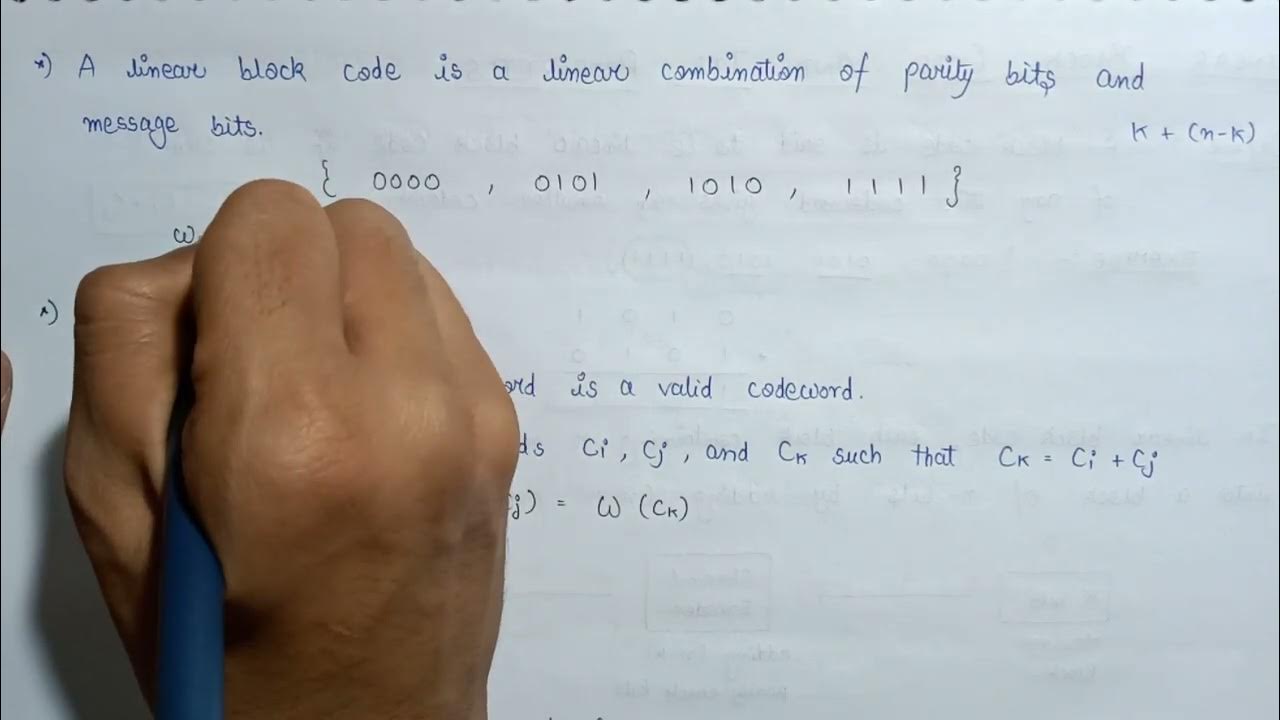 *) A linear block code is a linear combination of parity bits and
message bits.
K + (n-K)
{ 0000 , 0101 , 1010 , 1111 }
ω
*)
is a valid codeword.
Ci , Cj , and CK such that CK = Ci + Cj
) = ω (CK)